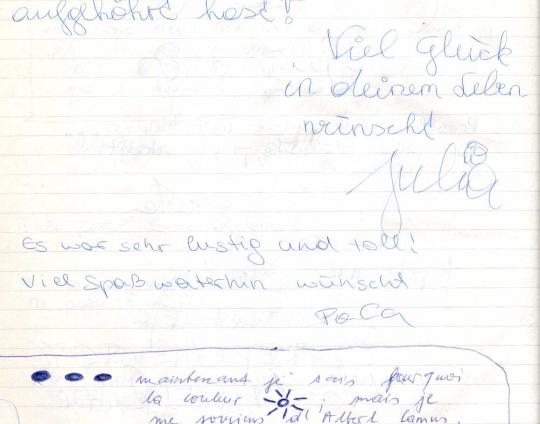 aufgehöhrt hast!
Viel Glück
in deinem Leben
wünscht
Julia
Es war sehr lustig und toll!
Viel Spaß weiterhin wünscht
maintenant je sais pourquoi
la couleur ; mais je
me souviens d'Albert Camus.